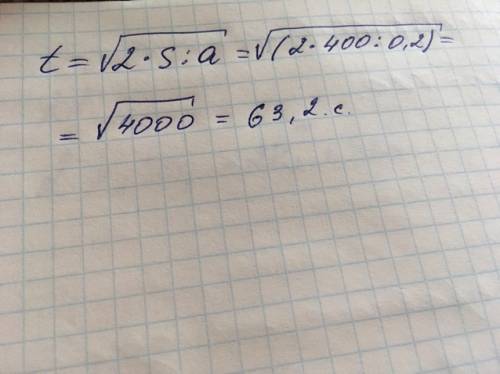 t = √2·S:a = √(2·400:0,2) =
= √4000 = 63,2.c.